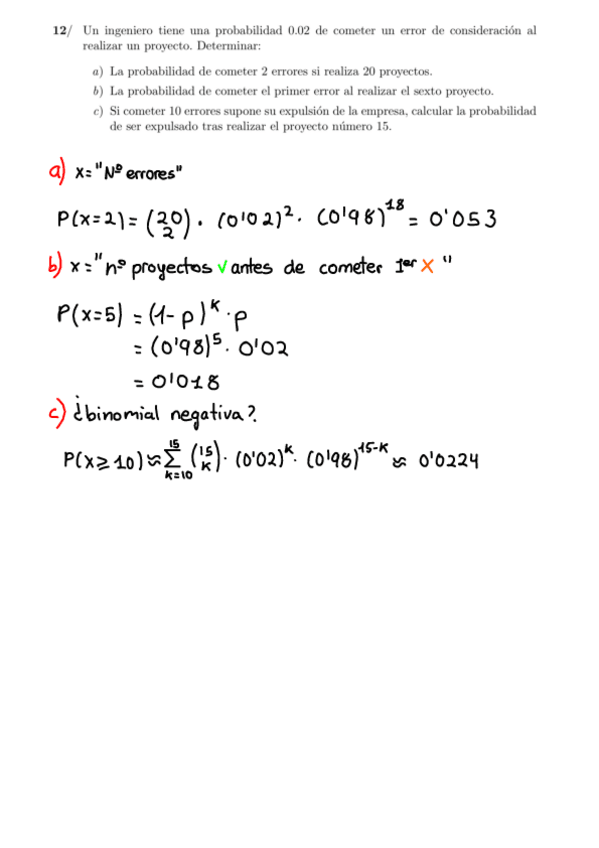 12/ Un ingeniero tiene una probabilidad 0.02 de cometer un error de consideración al
realizar un proyecto. Determinar:
a) La probabilidad de cometer 2 errores si realiza 20 proyectos.
b) La probabilidad de cometer el primer error al realizar el sexto proyecto.
c) Si cometer 10 errores supone su expulsión de la empresa, calcular la probabilidad
de ser expulsado tras realizar el proyecto número 15.
a) x="Nº errores"
P(x=2)= (20 2) · (0'02)² · (0'98)¹⁸ = 0'053
b) x="nº proyectos √ antes de cometer 1er X "
P(x=5) = (1-p)ᵏ · p
= (0'98)⁵ · 0'02
= 0'018
c) ¿binomial negativa?
P(x≥10)≈ 15 Σ k=10 (15 k) · (0'02)ᵏ · (0'98)¹⁵⁻ᴷ ≈ 0'0224